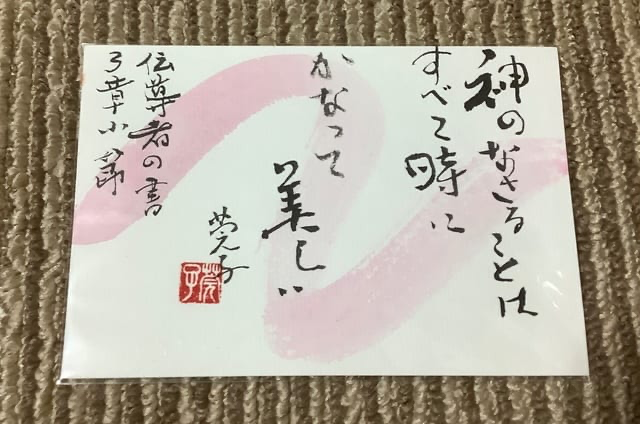 神のなさることは
すべて時に
かなって
美しい
伝尊者の書
3章小節
莞子
莞子